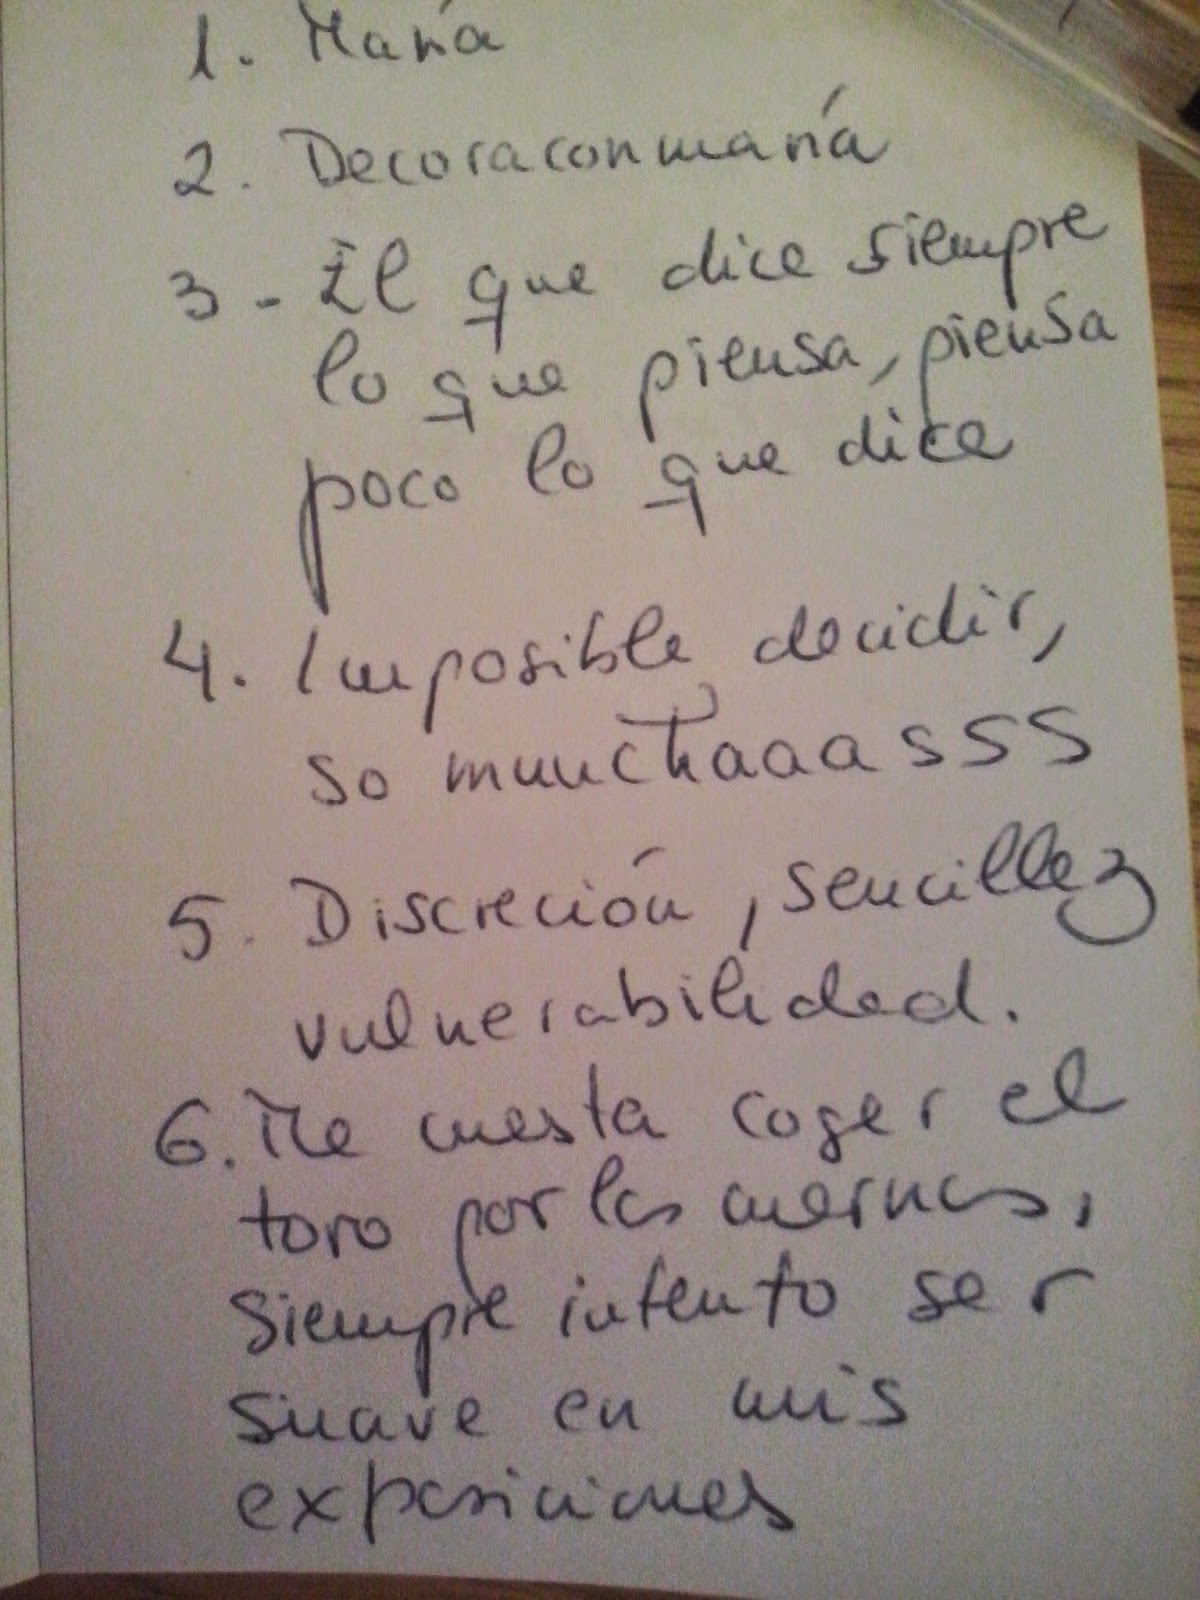 1. María
2. Decoraconmaría
3 - El que dice siempre
lo que piensa, piensa
poco lo que dice
4. Imposible decidir,
so muuchaaasss
5. Discreción, sencillez
vulnerabilidad.
6. Me cuesta coger el
toro por los cuernos,
siempre intento ser
suave en mis
exposiciones